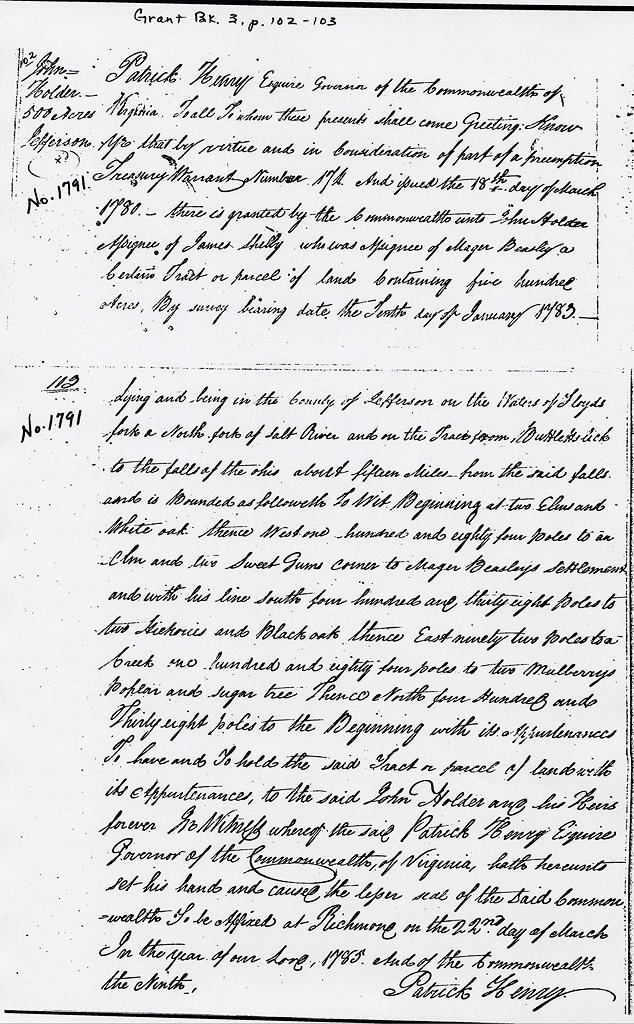 Grant Bk. 3, p. 102-103
102
John
Holder.
500 Acres
Jefferson.
No. 1791
Patrick Henry Esquire Governor of the Commonwealth of
Virginia. To all To whom these presents shall come Greeting: Know
Ye that by virtue and in Consideration of part of a preemption
Treasury Warrant Number 174 And issued the 18th day of March
1780 – there is granted by the Commonwealth unto John Holder
Assignee of James Shelly who was Assignee of Mager Beasly a
Certain Tract or parcel of land Containing five hundred
Acres, By survey bearing date the Tenth day of January 1783 –
103
No. 1791
Lying and being in the County of Jefferson on the Waters of Floyds
fork a North fork of Salt River and on the Trace from Bulletts lick
to the falls of the ohio about fifteen Miles from the said falls
and is Bounded as followeth To Wit Beginning at two Elms and
White oak thence West one hundred and eighty four poles to an
Elm and two Sweet Gums corner to Mager Beasleys Settlement
and with his line South four hundred and thirty eight poles to
two Hickories and Black oak thence East ninety two poles to a
Creek one hundred and eighty four poles to two Mulberrys
Poplar and sugar tree Thence North four Hundred and
Thirty eight poles to the Beginning with its Appurtenances
To have and To hold the said Tract or parcel of land with
its Appurtenances, to the said John Holder and his Heirs
forever In Witness whereof the said Patrick Henry Esquire
Governor of the Commonwealth, of Virginia, hath hereunto
set his hand and caused the lesser seal of the Said Common
=wealth To be Affixed at Richmond on the 22nd day of March
In the year of our Lord, 1785. And of the Commonwealth
the Ninth,
Patrick Henry